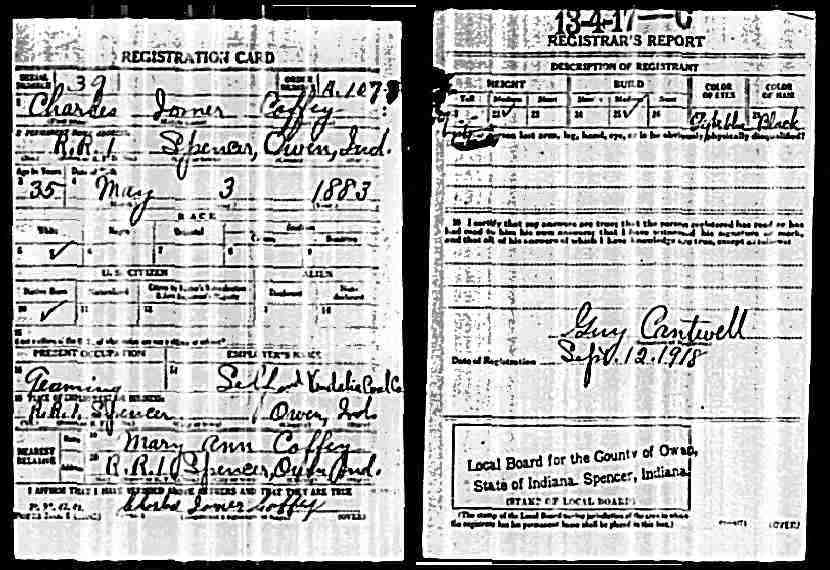 REGISTRATION CARD
SERIAL NUMBER 39
ORDER NUMBER A.107
1 Charles Jomer Coffey
2 PERMANENT HOME ADDRESS:
R.R.1 Spencer, Owen, Ind.
Age in Years Date of Birth
35 May 3 1883
RACE
White Negro Oriental Indian
5 6 7 8 9
U. S. CITIZEN ALIEN
Native Born Naturalized
10 11 12
PRESENT OCCUPATION EMPLOYER'S NAME
Teaming Vandalia Coal Co
R.R.1. Spencer Owen, Ind.
NEAREST RELATIVE
Name Mary Ann Coffey
Address R.R.1 Spencer, Owen, Ind.
I AFFIRM THAT I HAVE VERIFIED ABOVE ANSWERS AND THAT THEY ARE TRUE
Charles Jomer Coffey
(OVER)
13-4-17—C
REGISTRAR'S REPORT
DESCRIPTION OF REGISTRANT
HEIGHT BUILD COLOR OF EYES COLOR OF HAIR
Tall Medium Short Slender Medium Stout
22 23 24 25 26
Black
lost arm, leg, hand, eye, or is he obviously physically disqualified?
30 I certify that my answers are true; that the person registered has read or has
had read to him his own answers; that I have witnessed his signature or mark,
and that all of his answers of which I have knowledge are true, except as follows:
Guy Cantwell
Date of Registration Sept. 12. 1918
Local Board for the County of Owen,
State of Indiana. Spencer, Indiana.
(STAMP OF LOCAL BOARD)
(The stamp of the Local Board having jurisdiction of the area in which
the registrant has his permanent home shall be placed in this box.)
(OVER)